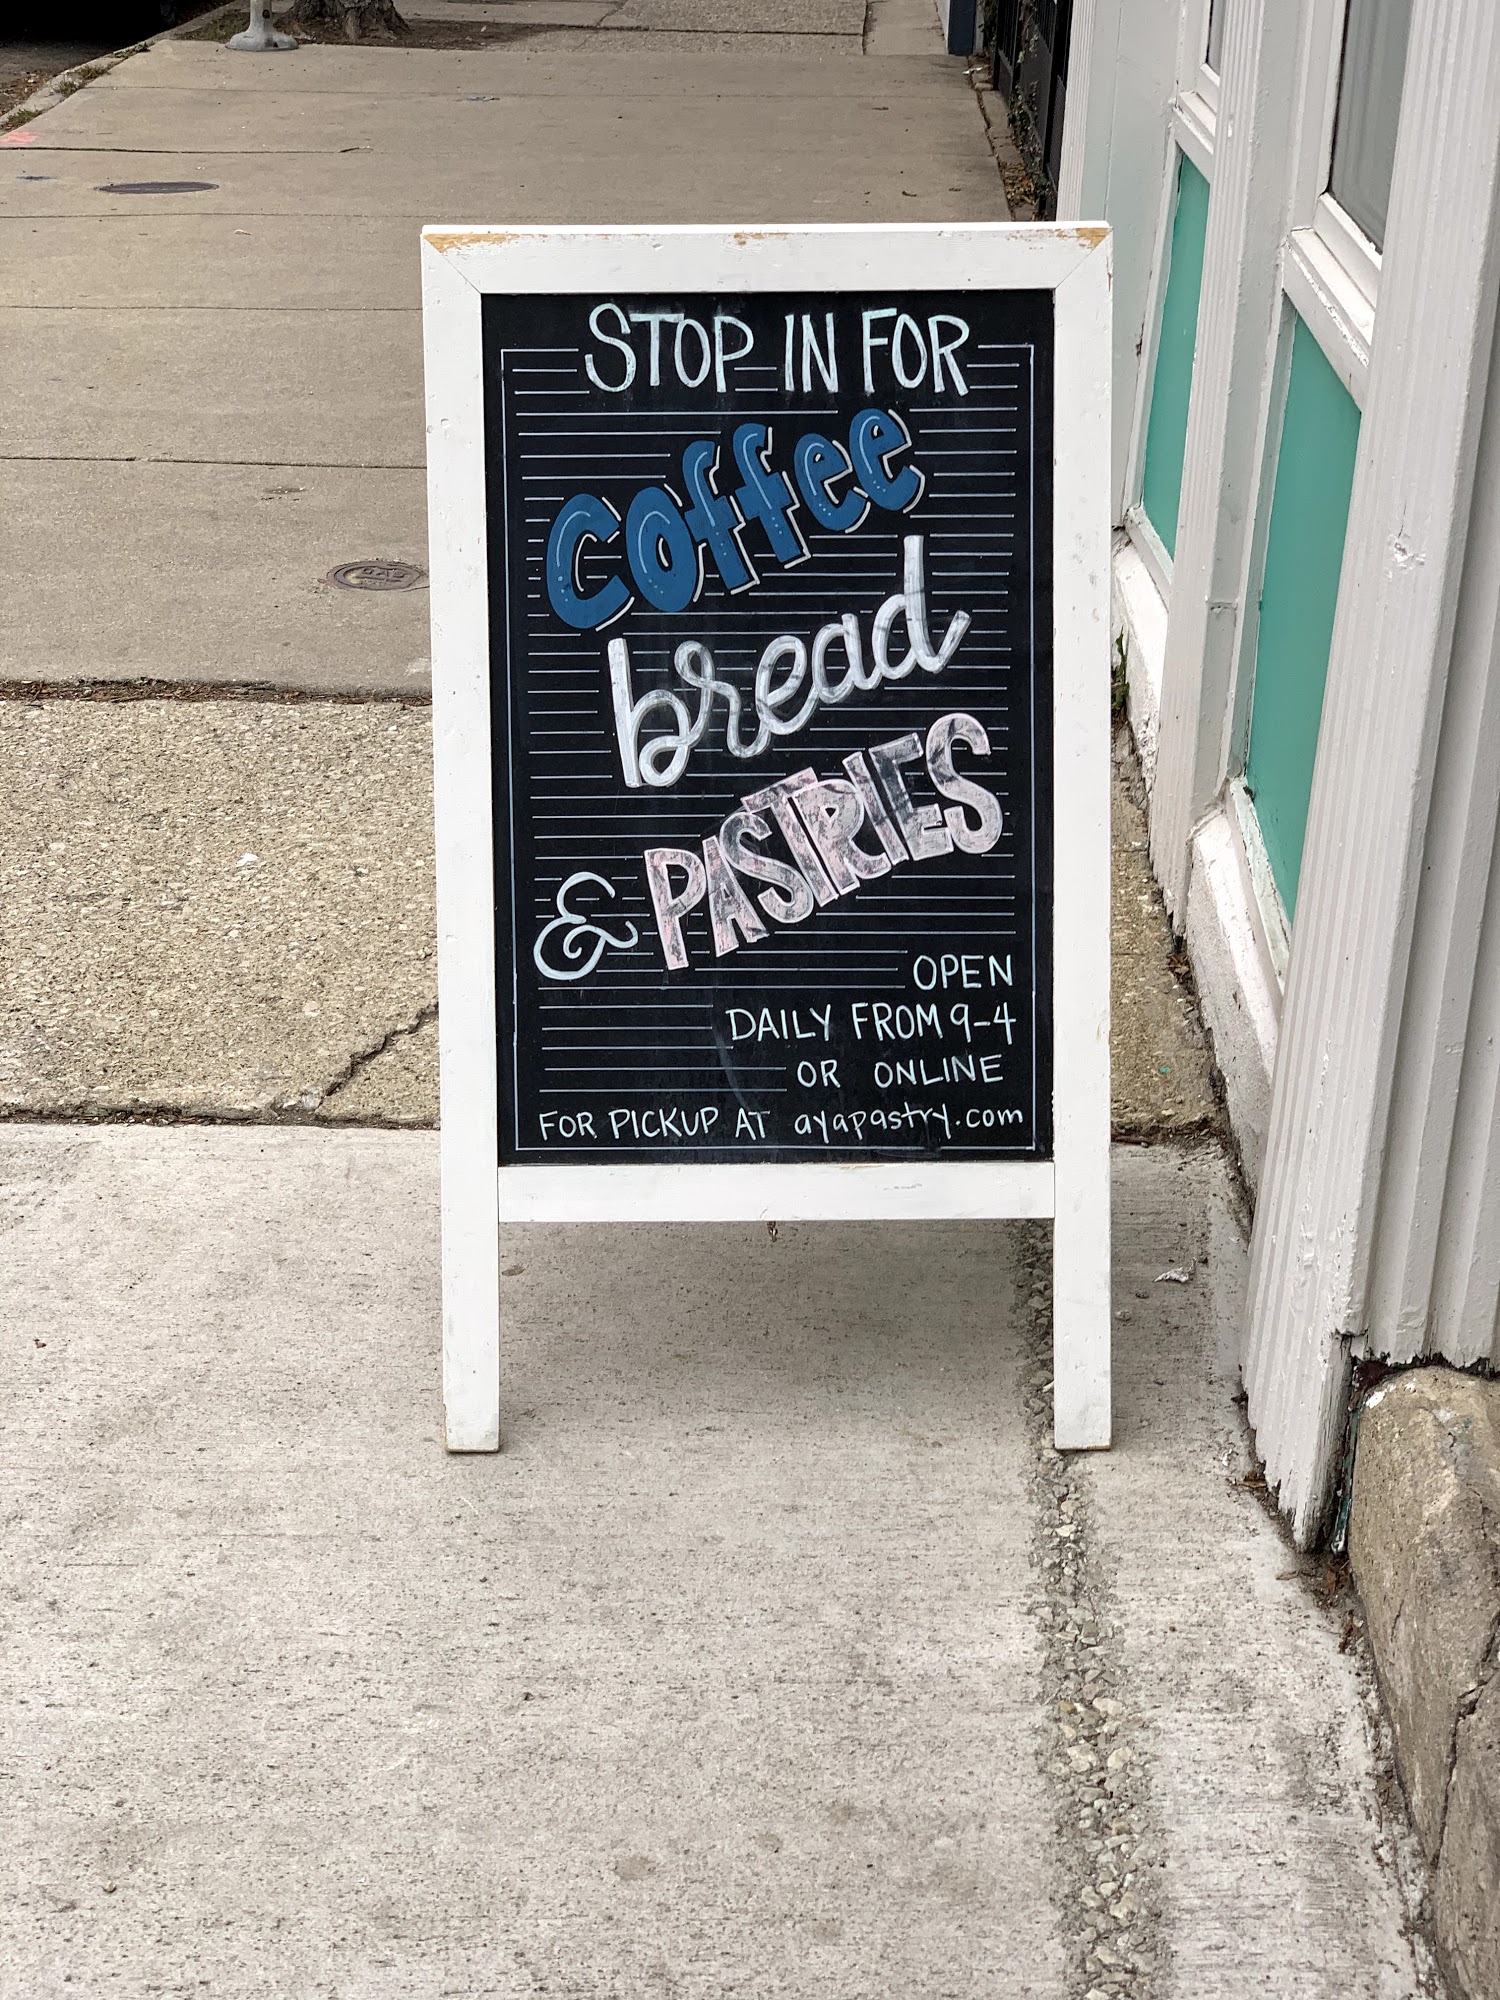 STOP IN FOR
coffee
bread
& PASTRIES
OPEN
DAILY FROM 9-4
OR ONLINE
FOR PICKUP AT ayapastry.com
GAS